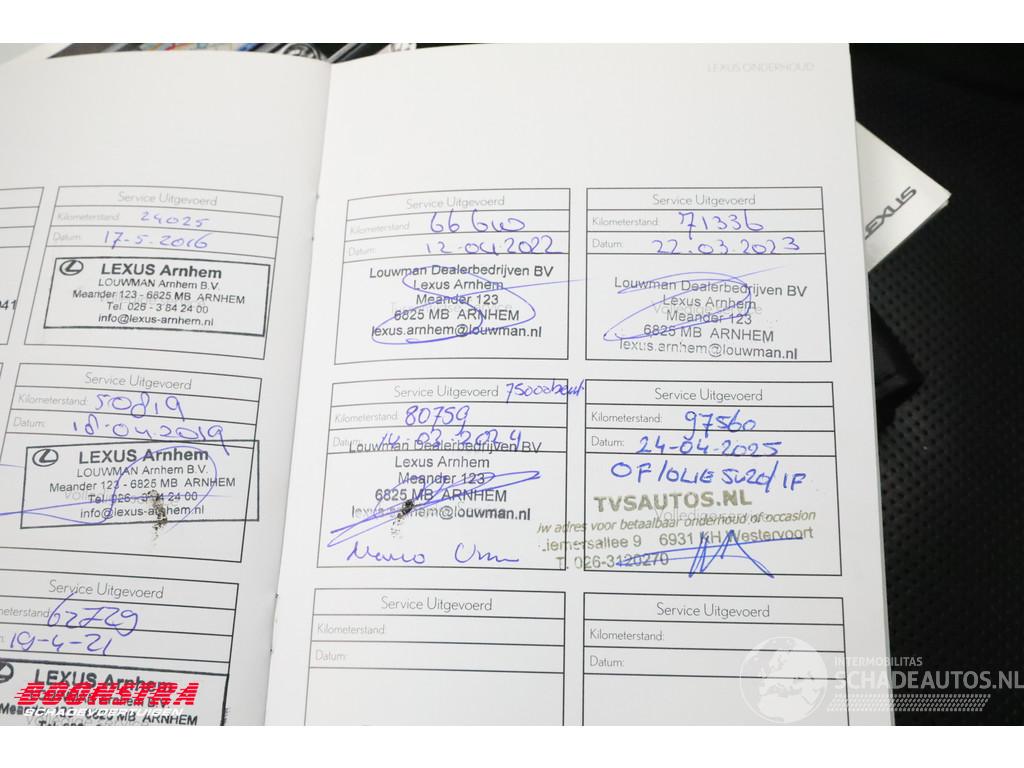 LEXUS ONDERHOUD
Service Uitgevoerd
Kilometerstand: 24025
Datum: 17-5-2016
LEXUS Arnhem
LOUWMAN Arnhem B.V.
Meander 123 - 6825 MB ARNHEM
Tel. 026 - 3 84 24 00
info@lexus-arnhem.nl
Service Uitgevoerd
Kilometerstand: 50819
Datum: 18-04-2019
LEXUS Arnhem
LOUWMAN Arnhem B.V.
Meander 123 - 6825 MB ARNHEM
Tel. 026 - 3 84 24 00
info@lexus-arnhem.nl
Service Uitgevoerd
62729
19-4-21
LEXUS Arnhem
Service Uitgevoerd
Kilometerstand: 66610
Datum: 12-04-2022
Louwman Dealerbedrijven BV
Lexus Arnhem
Meander 123
6825 MB ARNHEM
lexus.arnhem@louwman.nl
Service Uitgevoerd
Kilometerstand: 71336
Datum: 22.03.2023
Louwman Dealerbedrijven BV
Lexus Arnhem
Meander 123
6825 MB ARNHEM
lexus.arnhem@louwman.nl
Service Uitgevoerd
Kilometerstand: 80759
Datum: 14-02-2024
Louwman Dealerbedrijven BV
Lexus Arnhem
Meander 123
6825 MB ARNHEM
lexus.arnhem@louwman.nl
Service Uitgevoerd
Kilometerstand: 97560
Datum: 24-04-2025
OF/OLIE 5W20/IF
TVSAUTOS.NL
uw adres voor betaalbaar onderhoud of occasion
Liemersallee 9 6931 KH Westervoort
T. 026-3120270
Service Uitgevoerd
Kilometerstand:
Datum:
Service Uitgevoerd
Kilometerstand:
Datum:
LEXUS
BOONSTRA
SCHADEVOERTUIGEN
INTERMOBILITAS
SCHADEAUTOS.NL